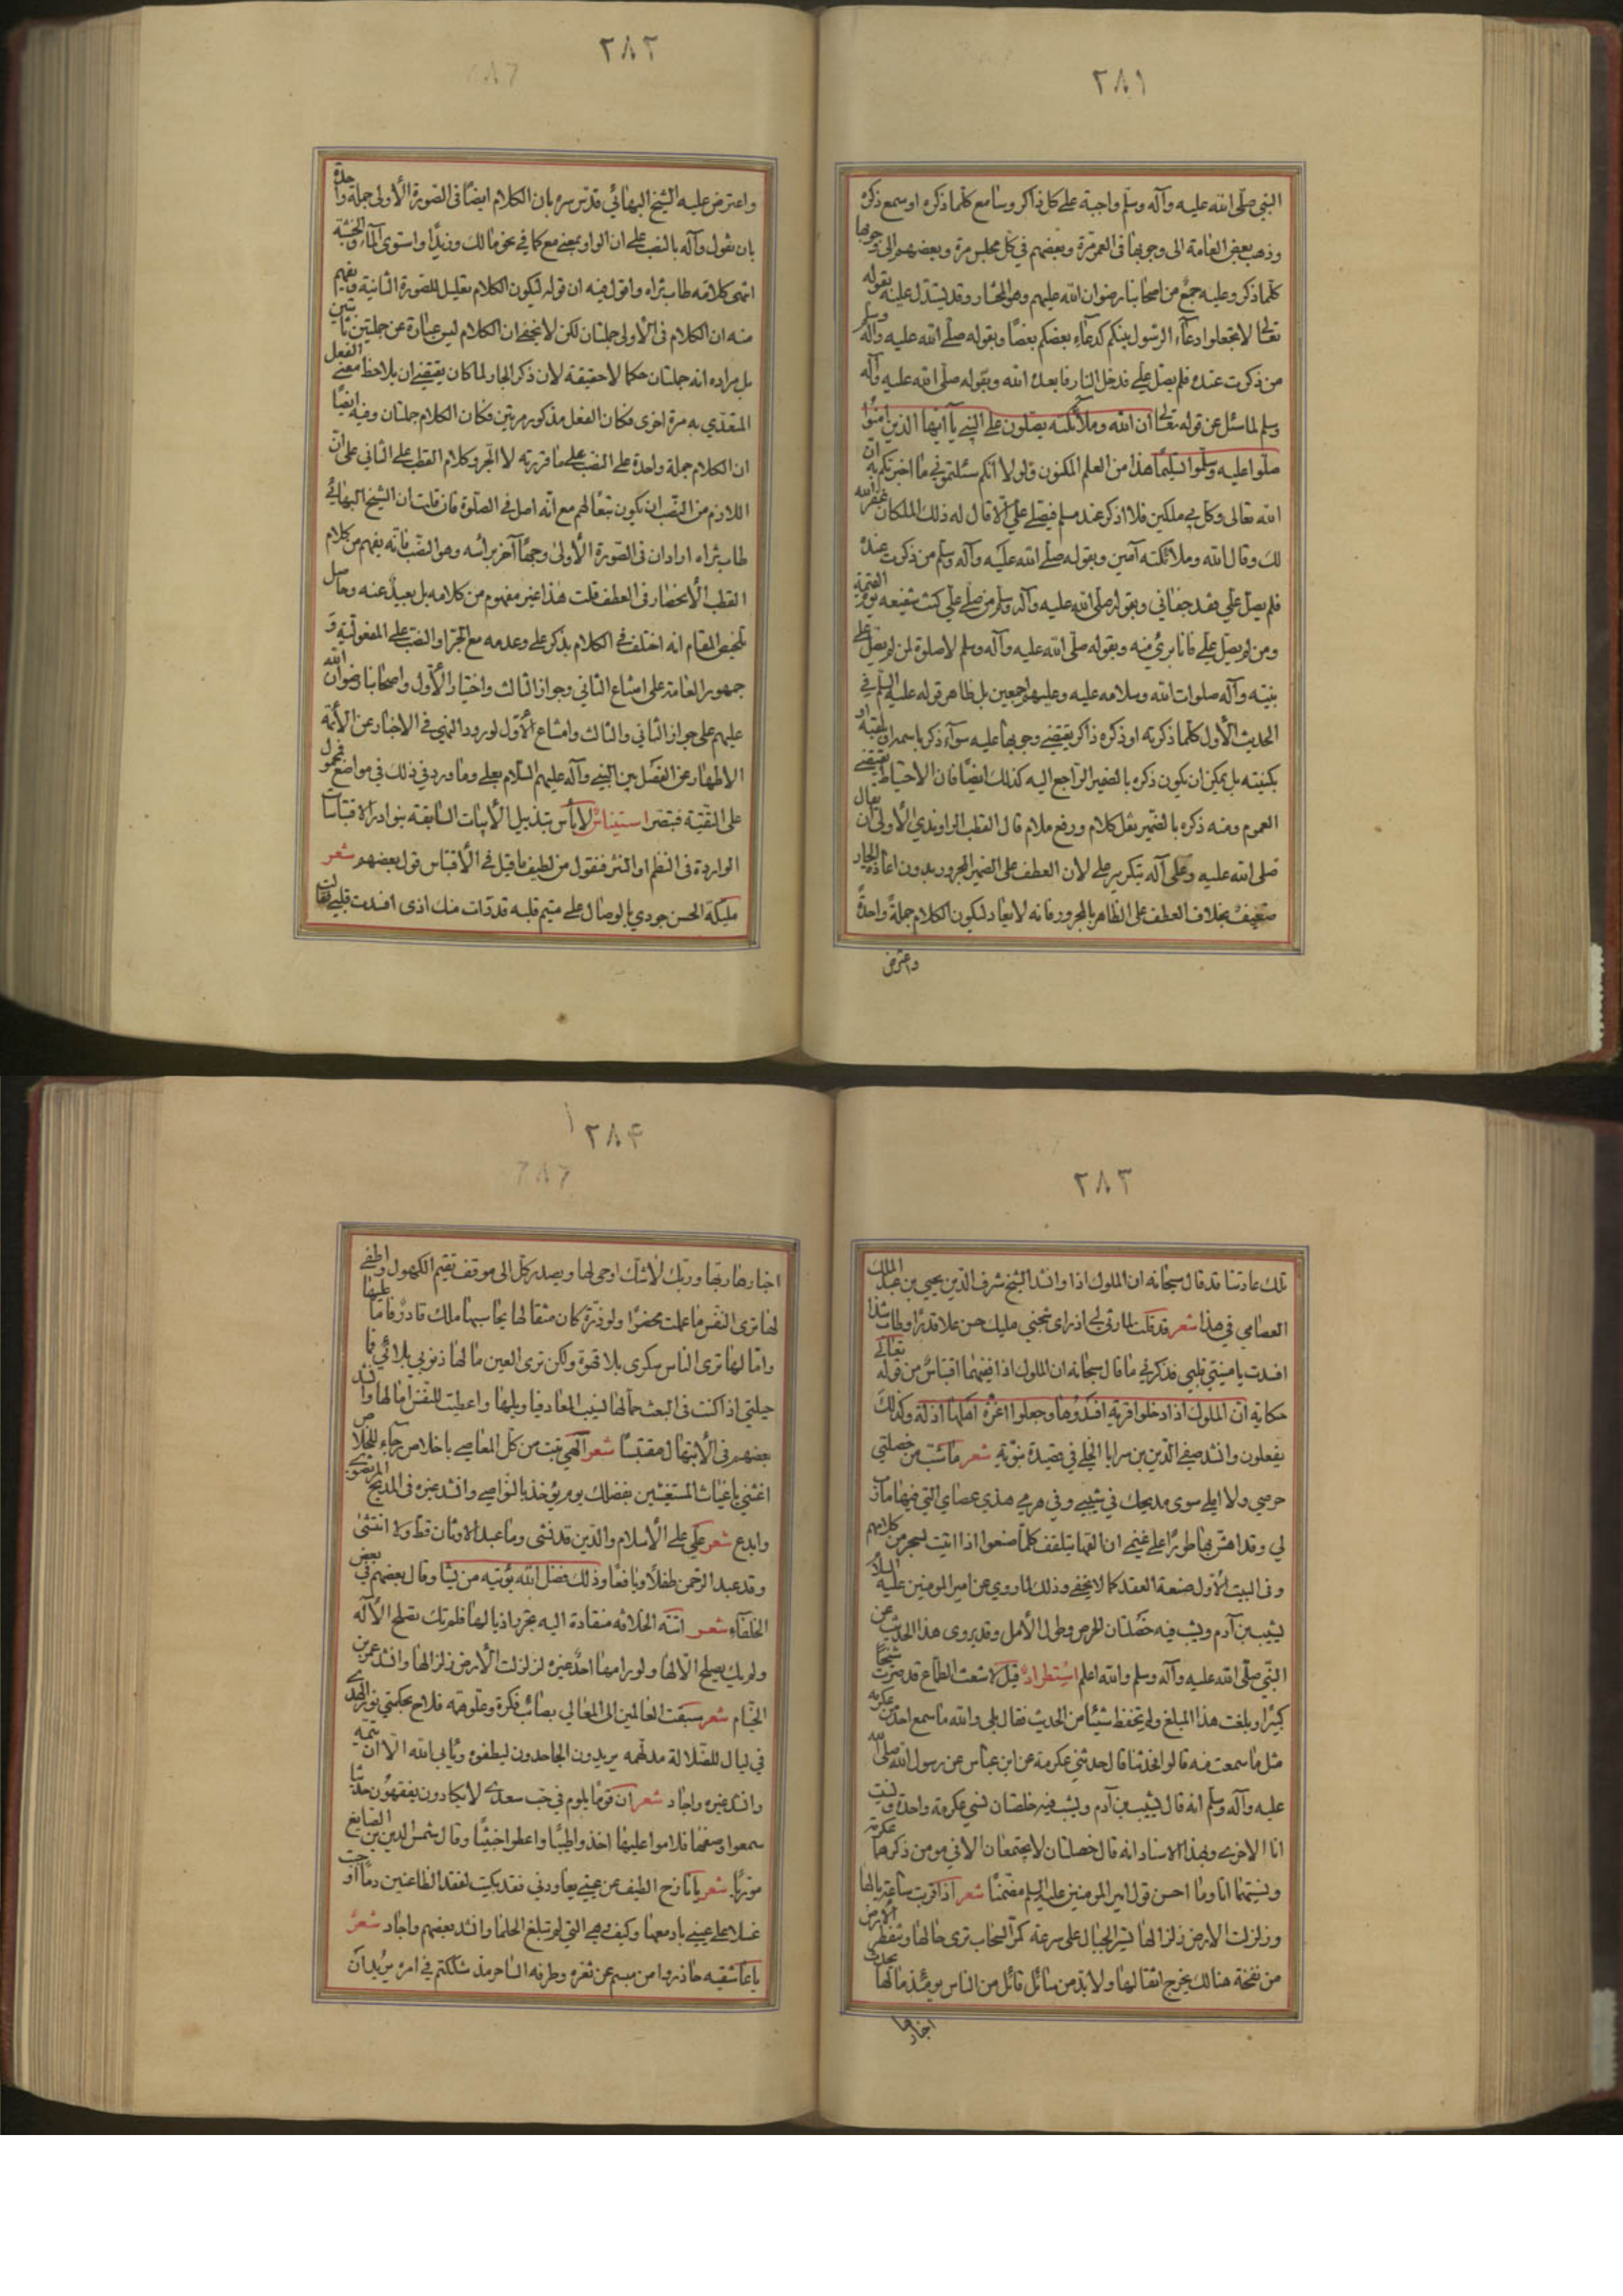 ٢٨١
النبي صلّى الله عليه وآله وسلّم واجبة على كل ذاكر وسامع كلّما ذكره او سمع ذكره
وذهب بعض العامة الى وجوبها في العمر مرّة وبعضهم في كل مجلس مرة وبعضهم الى وجوبها
كلّما ذكر وعليه جمع من اصحابنا رضوان الله عليهم وهو المختار وقد يستدل عليه بقوله
تعالى لا تجعلوا دعاء الرسول بينكم كدعاء بعضكم بعضًا وبقوله صلّى الله عليه وآله وسلم
من ذكرت عنده فلم يصل علي فدخل النار فابعده الله وبقوله صلّى الله عليه وآله
وسلم لما سئل عن قوله تعالى ان الله وملائكته يصلون على النبي يا ايها الذين امنوا
صلّوا عليه وسلّموا تسليمًا هذا من العلم المكنون ولولا انكم سئلتموني ما اخبرتكم به ان
الله تعالى وكل بي ملكين فلا اذكر عند مسلم فيصلي علي الا قال له ذلك الملكان غفر الله
لك وقال الله وملائكته آمين وبقوله صلّى الله عليه وآله وسلّم من ذكرت عنده
فلم يصل علي فقد جفاني وبقوله صلى الله عليه وآله وسلم من صلّى علي كنت شفيعه يوم القيمة
ومن لم يصل علي فانا بريء منه وبقوله صلّى الله عليه وآله وسلم لا صلوة لمن لم يصل على
نبيه وآله صلوات الله وسلامه عليه وعليهم اجمعين بل ظاهر قوله عليه السلم في
الحديث الأول كلّما ذكرته او ذكره ذاكر يقتضي وجوبها عليه سوآء ذكر باسمه او لقبه او
بكنيته بل يمكن ان يكون ذكره بالضمير الراجع اليه كذلك ايضًا فان الاحتياط يقتضي
العموم ومنه ذكره بالضمير نقل كلام ورفع ملام قال القطب الراوندي الأولى ان يقال
صلى الله عليه وعلى آله بتكرير على لان العطف على الضمير المجرور بدون اعادة الجار
ضعيف بخلاف العطف على الظاهر بالمجرور فانه لا يعاد ليكون الكلام جملةً واحدةً
واعترض
٢٨٢
واعترض عليه الشيخ البهائي قدّس سره بان الكلام ايضًا في الصورة الأولى جملة واحدة
بان نقول وآله بالنصب على ان الواو بمعنى مع كما في نحو مالك وزيدًا واستوى المآء والخشبة
انتهى كلامه طاب ثراه واقول فيه ان قوله ليكون الكلام تعليل للصورة الثانية ويفهم
منه ان الكلام في الأولى جملتان لكن لا يخفى ان الكلام ليس عبارة عن جملتين تامتين
بل مراده انه جملتان حكما لا حقيقة لان ذكر الجار لما كان يقتضي ان يلاحظ معنى الفعل
المتعدّي به مرة اخرى فكان الفعل مذكور مرتين فكان الكلام جملتان وفيه ايضًا
ان الكلام جملة واحدة على النصب على ما قررته لا الجر وكلام القطب على الثاني على ان
اللازم من النصب ان يكون تبعًا لهم مع انّه اصل في الصلوة فان قلت ان الشيخ البهائي
طاب ثراه اراد ان في الصورة الأولى وجهًا آخر برأسه وهو النصب فانّه يفهم من كلام
القطب الأنحصار في العطف قلت هذا غير مفهوم من كلامه بل بعيد عنه وحاصل
تلخيص المقام انه اختلف في الكلام بذكر على وعدمه مع الجر او النصب على المفعوليّة و
جمهور العامة على امتناع الثاني وجواز الثالث واختيار الأول واصحابنا رضوان الله
عليهم على جواز الثاني والثالث وامتناع الأول لورود النهي في الاخبار عن الأئمة
الاطهار عن الفصل بين النبي وآله عليهم السّلام بعلى وما ورد في ذلك في مواضع فمحمول
على التقيّة فتبصّر استيناس لا بأس بتذييل الأبيات السّابقة بنوادر الاقتباسات
الواردة في النظم او النثر فنقول من لطيف ما قيل في الأقتباس قول بعضهم شعر
مليكة الحسن جودي بالوصال على متيم قلبه قد ذاب منك اذى افسدت قلبي فقالت
٢٨٣
تلك عادتنا قد قال سبحانه ان الملوك اذا وانشد الشيخ شرف الدّين يحيى بن عبد الملك
العصامي في هذا شعر قد قلت لما رق لي اذ راى شجني مليك حسن علا قدرًا وطاب شذا
افسدت يا منيتي قلبي فذكرني ما قال سبحانه ان الملوك اذا ففيهما اقتباسٌ من قوله تعالى
حكاية ان الملوك اذا دخلوا قرية افسدوها وجعلوا اعزّة اهلها اذلّة وكذلك
يفعلون وانشد صفي الدّين بن سرايا الحلي في قصيدة نبوّية شعر ما شبّ من خصلتي
حرصي ولا املي سوى مديحك في شيبي وفي هرمي هذي عصاي التي فيها مآرب
لي وقد اهش بها طورًا على غنمي ان القها تتلقف كلّما صنعوا اذا اتيت بسحر من كلامهم
وفي البيت الأول صنعة العقد كما لا يخفى وذلك لما روي عن امير المومنين عليه السلام
يشيب بن آدم ويشب فيه خصلتان الحرص وطول الأمل وقد يروى هذا الحديث عن
النبي صلّى الله عليه وآله وسلم والله اعلم استطرادٌ قيل لاشعث الطمّاع قد صرت شيخًا
كبيرًا وبلغت هذا المبلغ ولم تحفظ شيئًا من الحديث فقال بلى والله ما سمع احد من عكرمه
مثل ما سمعت منه قالوا فحدثنا قال حدثني عكرمة عن ابن عباس عن رسول الله صلى الله
عليه وآله وسلّم انه قال يشيب بن آدم ويشب فيه خلصتان نسي عكرمة واحدة ونسيت
انا الاخرى وبهذا الاسناد انه قال خصلتان لا يجتمعان الا في مومن ذكر عكرمة
ونسيتها انا وما احسن قول امير المومنين عليه السلم مضمّنًا شعر اذا قربت ساعة يا لها
وزلزلت الارض زلزالها تسير الجبال على سرعة كمرّ السّحاب ترى حالها وتنفطر الأرض
من نفخة هنالك يخرج اثقالها ولا بدّ من سائل قائل من الناس يومئذ ما لها تحدث
اخبارها
٢٨۴
اخبارها ربّها وربك لا شك اوحى لها ويصدر كل الى موقف تقيم الكهول واطفالها
لها ترى النفس ما عملت محضرًا ولو ذرّة كان مثقالها يحاسبها ملك قادرٌ فاما عليها
وامّا لها ترى الناس سكرى بلا قهوة ولكن ترى العين ما لها ذنوبي بلائي فما
حيلتي اذا كنت في البعث حمالها نسيت المعاد فيا ويلها واعطيت للنفس امالها وانشد
بعضهم في الأبتهال مقتبسًا شعر الهي تبت من كل المعاصي باخلاص رجاء للخلاص
اغثني يا غياث المستغثين بفضلك يوم يؤخذ بالنواصي وانشد غيره في المديح المرتضوي
وابدع شعر علي على الأسلام والدّين قد نشى وما عبد الاوثان قط ولا انتشى
وقد عبد الرحمن طفلًا ويافعًا وذلك فضل الله يؤتيه من يشا وقال بعضهم في بعض
الخلفاء شعر اتته الخلافه منقادة اليه تجرر اذيالها فلم تك تصلح الا له
ولم يك يصلح الا لها ولو رامها احدٌ غيره لزلزلت الأرض زلزالها وانشد عمر بن
الخيّام شعر سبقت العالمين الى المعالي بصائب فكرة وعلو همّه فلاح بحكمتي نور الهدى
في ليال للضّلالة مدلهمه يريدون الجاحدون ليطفؤه ويأبى الله الا ان يتمّه
وانشد غيره واجاد شعر ان قومًا يلوم في حب سعدى لا يكادون يفقهون حديثا
سمعوا وصفها فلاموا عليها اخذوا طيبًا واعطوا خبيثًا وقال شمس الدين بن الصايغ
مورّيا شعر يا نازح الطيف من عيني يعاودني فقد بكيت لفقد الظاعنين دمًا اوجبت
غسلا على عيني بادمعها وكيف وهي التي لم تبلغ الحلما وانشد بعضهم واجاد شعر
يا عاشقيه حاذروا من مبسم عن ثغره وطرفه الساحر مذ شككتم في امره يريد ان